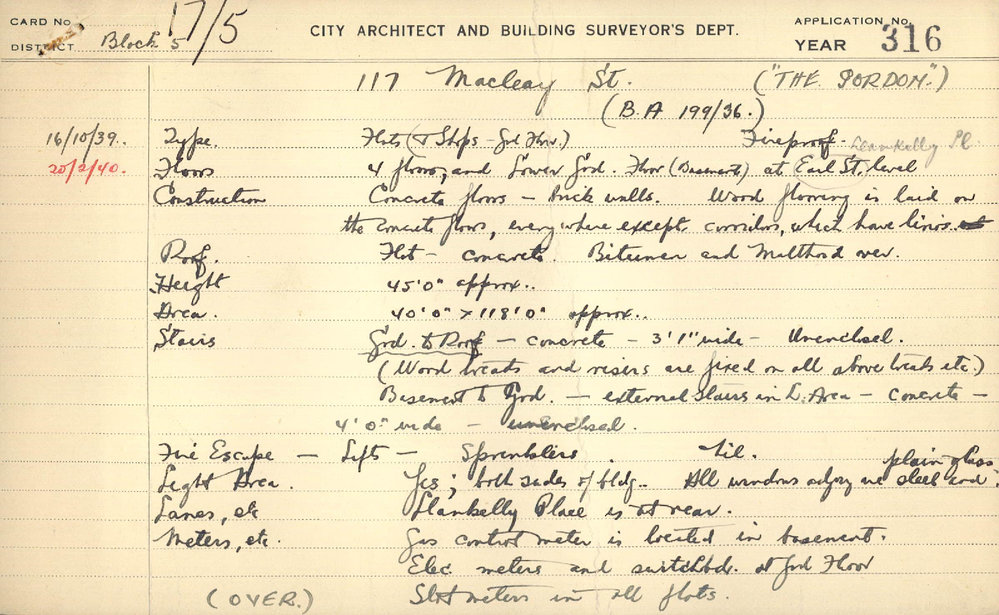 CARD No 17/5 CITY ARCHITECT AND BUILDING SURVEYOR'S DEPT. APPLICATION No.
DISTRICT Block 5 YEAR 316
117 Macleay St. ("THE GORDON.")
(B.A 199/36.)
16/10/39. Type. Flats (& Shops - Grd Floor.) Fireproof - Llankelly Pl
20/2/40. Floors 4 floors; and Lower Grd. Floor (Basement) at Earl St, level
Construction Concrete floors - brick walls. Wood flooring is laid on
the concrete floors, everywhere except corridors, which have
Roof. Flat - concrete. Bitumen and Malthoid over.
Height 45'0" approx..
Area. 40'0" x 118'0" approx..
Stairs Grd. to Roof - concrete - 3'1" wide - Unenclosed.
(Wood treads and risers are fixed on all above treads etc.)
Basement to Grd. - external stairs in L. Area - concrete -
4'0" wide - unenclosed.
Fire Escape - Lifts - Sprinklers . Nil.
Light Area. Yes; both sides of bldg.. All windows are steel and plain glass.
Lanes, etc Llankelly Place is at rear.
Meters, etc. Gas control meter is located in basement.
Elec. meters and switchbds. at Grd Floor
(OVER.) Slot meters in all flats.